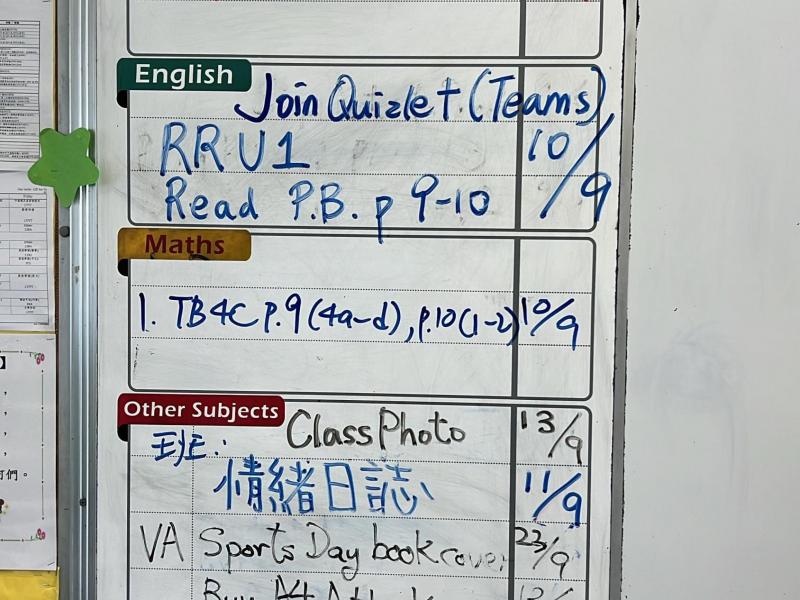 English
Join Quizlet (Teams)
RR U1 10/9
Read P.B. p 9-10
Maths
1. TB4C p.9 (4a-d), p.10 (1-2) 10/9
Other Subjects
班主: Class Photo 13/9
情緒日誌 11/9
VA Sports Day book cover 23/9